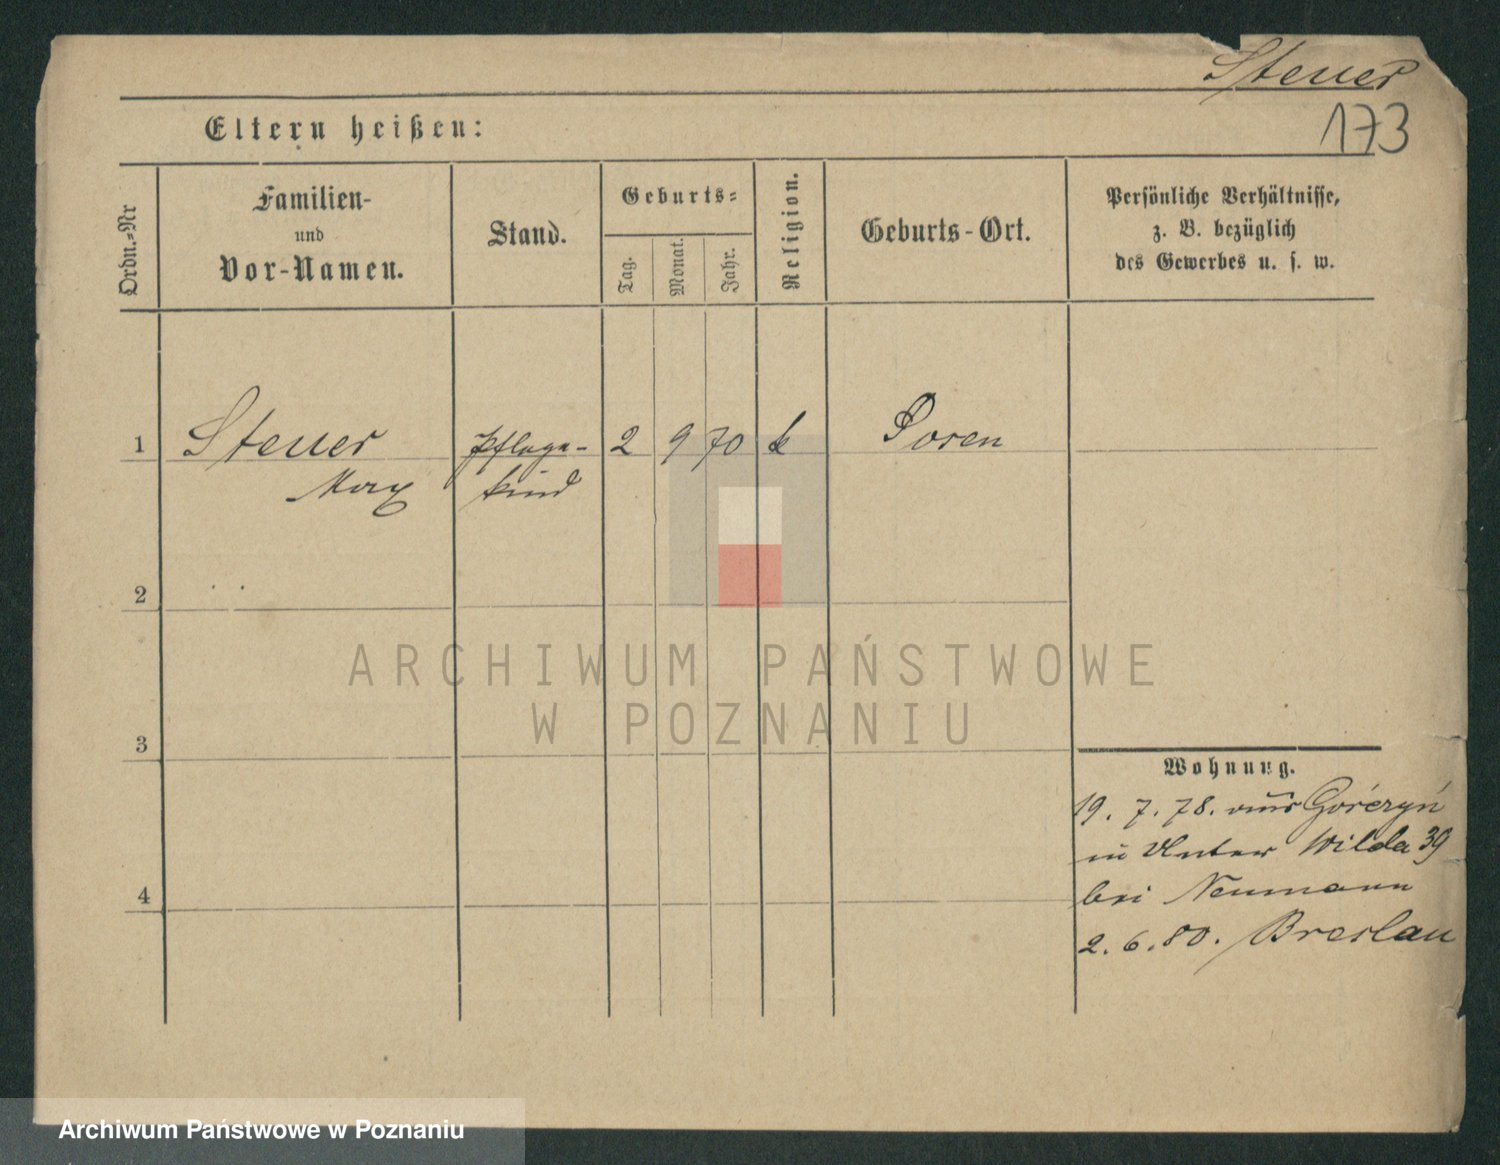 Steuer
173
Eltern heißen:
Ordn.=Nr
Familien-
und
Vor-Namen.
Stand.
Geburts=
Tag.
Monat.
Jahr.
Religion.
Geburts-Ort.
Persönliche Verhältnisse,
z. B. bezüglich
des Gewerbes u. s. w.
1 Steuer Pflege- 2 9 70 k Posen
Max kind
2
3
4
Wohnung.
19. 7. 78. aus Górczyń
in Unter Wilda 39
bei Neumann
2. 6. 80. Breslau
ARCHIWUM PAŃSTWOWE
W POZNANIU
Archiwum Państwowe w Poznaniu